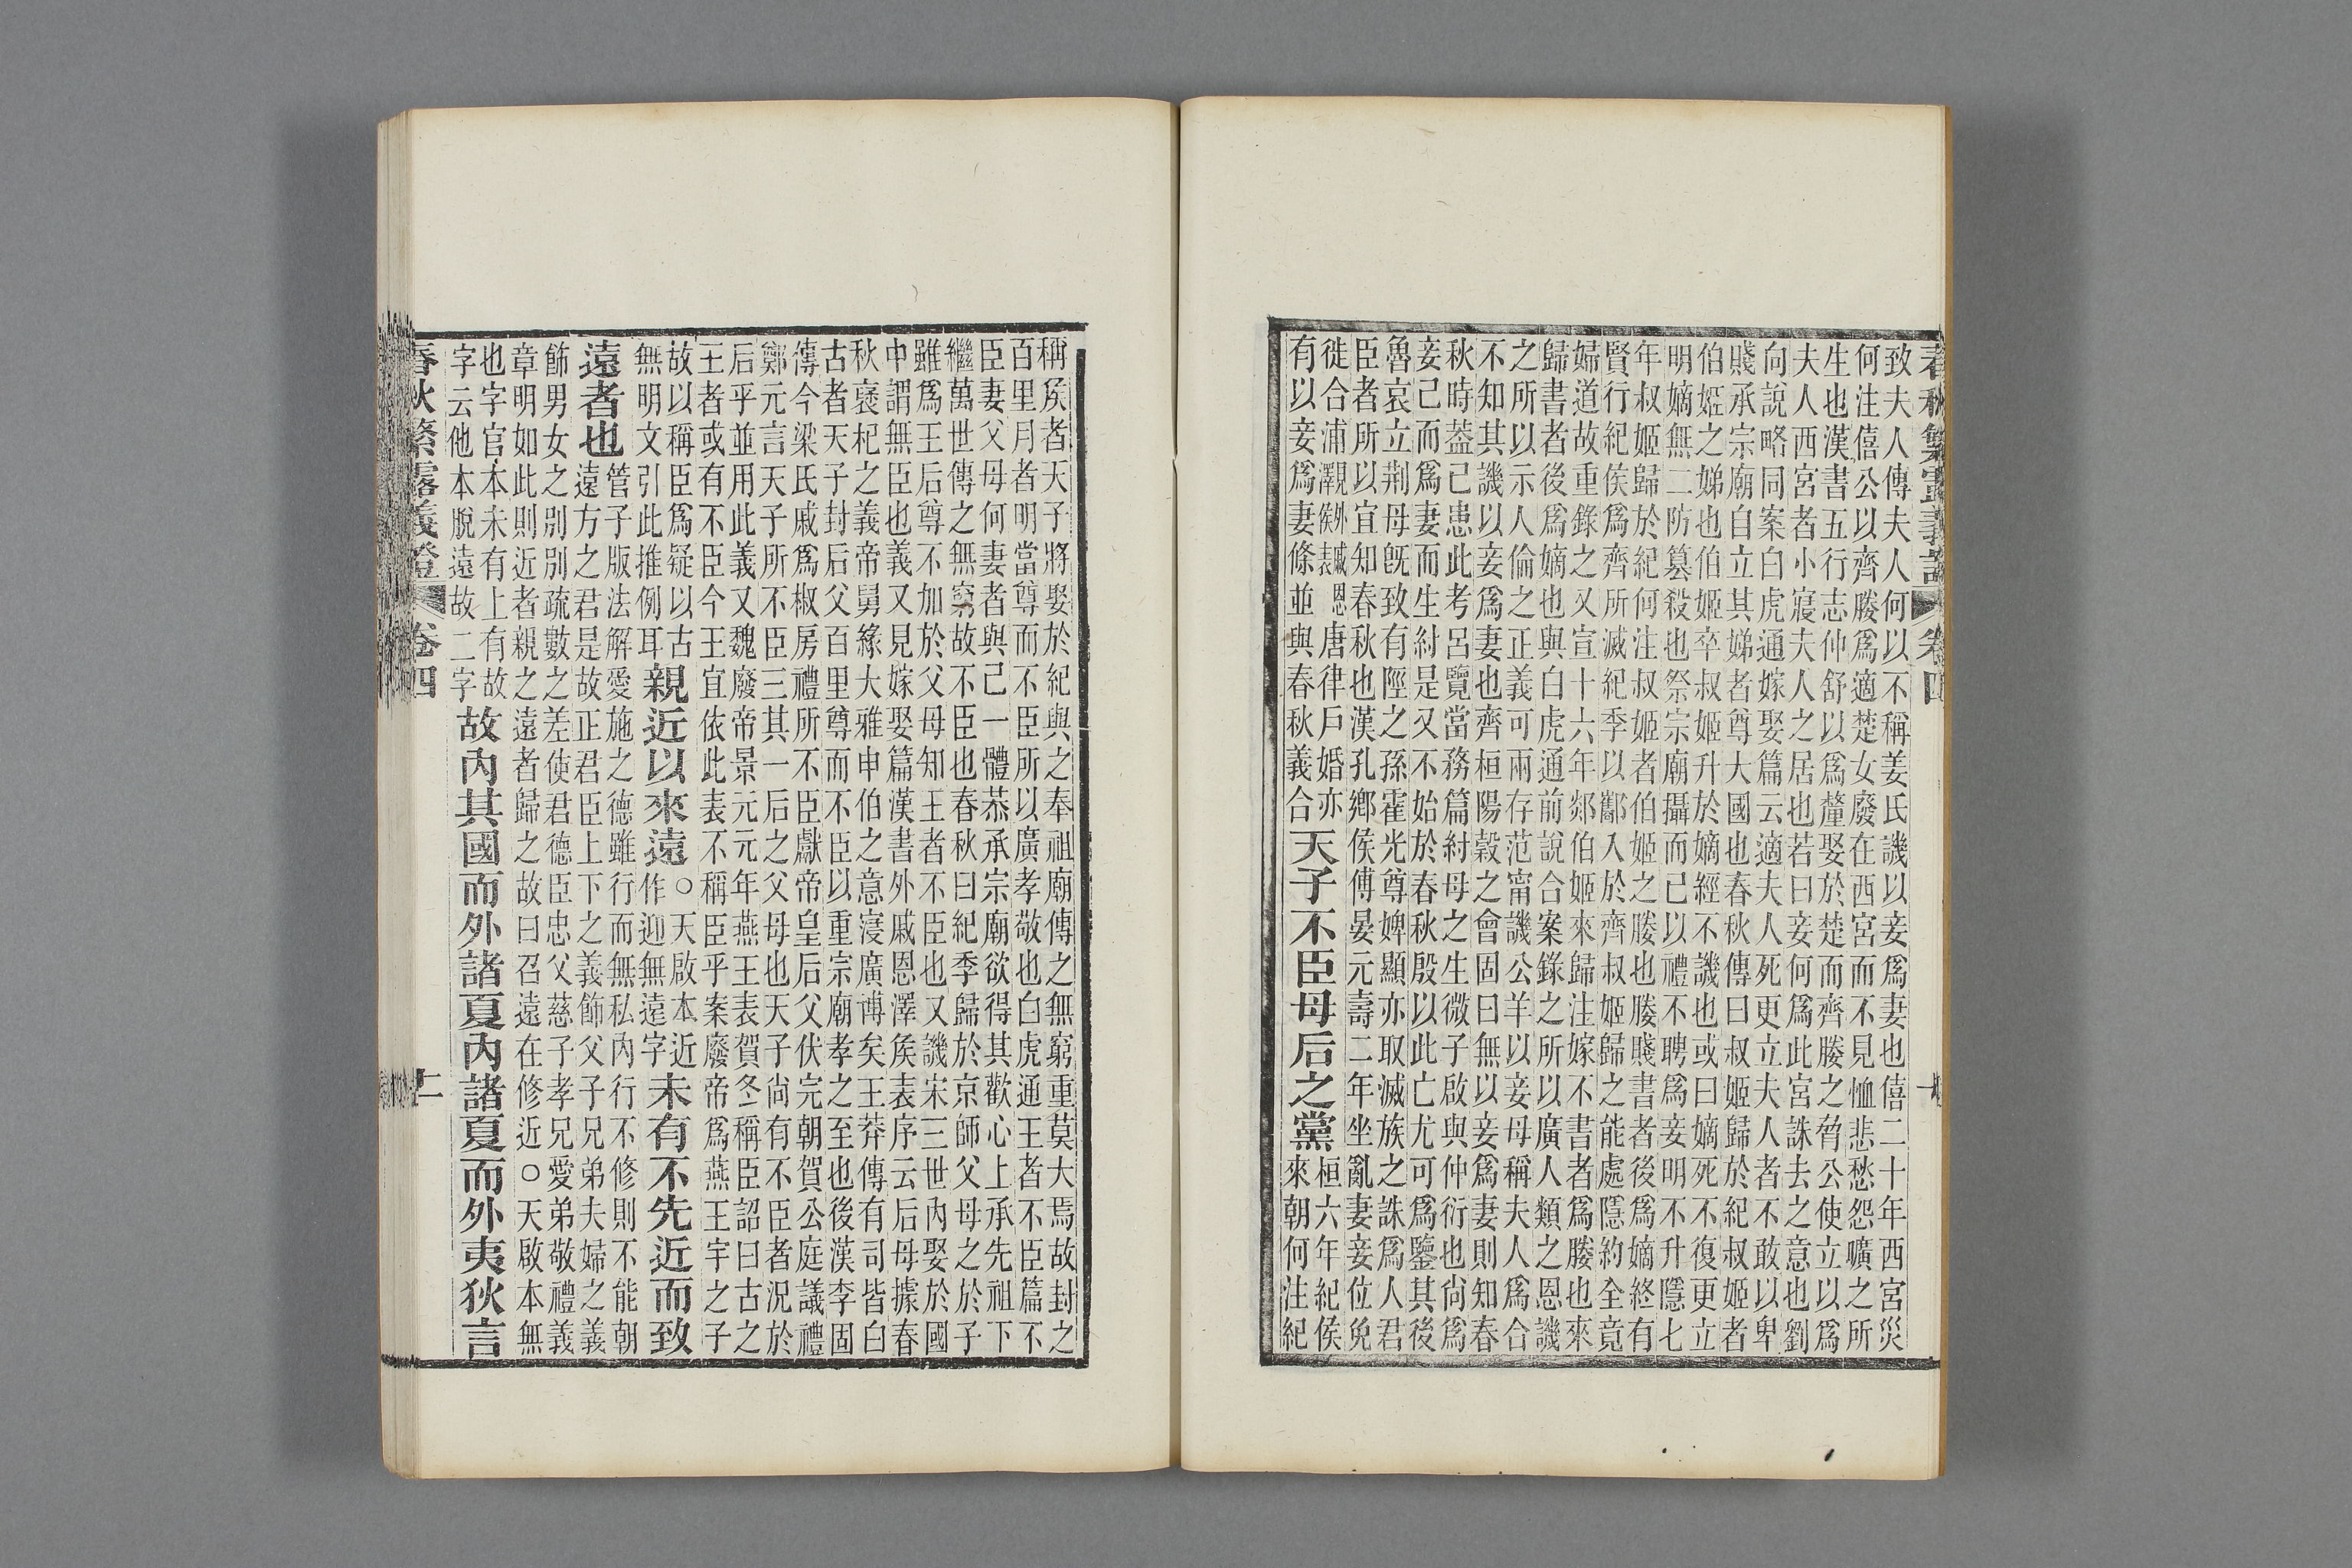 春秋繁露義證 卷四
致夫人傳夫人何以不稱姜氏譏以妾爲妻也僖二十年西宮災
何注僖公以齊媵爲適楚女廢在西宮而不見恤悲愁怨曠之所
生也漢書五行志仲舒以爲釐娶於楚而齊媵之脅公使立以爲
夫人西宮者小寢夫人之居也若曰妾何爲此宮誅去之意也劉
向說略同案白虎通嫁娶篇云適夫人死更立夫人者不敢以卑
賤承宗廟自立其娣者尊大國也春秋傳曰叔姬歸於紀叔姬者
伯姬之娣也伯姬卒叔姬升於嫡經不譏也或曰嫡死不復更立
明嫡無二防篡殺也祭宗廟攝而已以禮不聘爲妾明不升隱七
年叔姬歸於紀何注叔姬者伯姬之媵也媵賤書者後爲嫡終有
賢行紀侯爲齊所滅紀季以酅入於齊叔姬歸之能處隱約全竟
婦道故重錄之又宣十六年郯伯姬來歸注嫁不書者爲媵也來
歸書者後爲嫡也與白虎通前說合案錄之所以廣人類之恩譏
之所以示人倫之正義可兩存范甯譏公羊以妾母稱夫人爲合
不知其譏以妾爲妻也齊桓陽穀之會固曰無以妾爲妻則知春
秋時葢已患此考呂覽當務篇紂母之生微子啟與仲衍也尚爲
妾已而爲妻而生紂是又不始於春秋殷以此亡尤可爲鑒其後
魯哀立荆母旣致有陘之孫霍光尊婢顯亦取滅族之誅爲人君
臣者所以宜知春秋也漢孔鄉侯傅晏元壽二年坐亂妻妾位免
徙合浦見外戚恩澤侯表唐律戶婚亦
有以妾爲妻條並與春秋義合
天子不臣母后之黨
桓六年紀侯
來朝何注紀
稱侯者天子將娶於紀與之奉祖廟傳之無窮重莫大焉故封之
百里月者明當尊而不臣所以廣孝敬也白虎通王者不臣篇不
臣妻父母何妻者與己一體恭承宗廟欲得其歡心上承先祖下
繼萬世傳之無窮故不臣也春秋曰紀季歸於京師父母之於子
雖爲王后尊不加於父母知王者不臣也又譏宋三世內娶於國
中謂無臣也義又見嫁娶篇漢書外戚恩澤侯表序云后母據春
秋襃杞之義帝舅緣大雅申伯之意寖廣博矣王莽傳有司皆白
古者天子封后父百里尊而不臣以重宗廟孝之至也後漢李固
傳今梁氏戚爲椒房禮所不臣獻帝皇后父伏完朝賀公庭議禮
鄭元言天子所不臣三其一后之父母也天子尚有不臣者況於
后乎並用此義又魏廢帝景元元年燕王表賀冬稱臣詔曰古之
王者或有不臣今王宜依此表不稱臣乎案廢帝爲燕王宇之子
故以稱臣爲疑以古
無明文引此推例耳
親近以來遠
○天啟本近
作迎無遠字
未有不先近而致
遠者也
管子版法解愛施之德雖行而無私內行不修則不能朝
遠方之君是故正君臣上下之義飾父子兄弟夫婦之義
飾男女之別別疏數之差使君德臣忠父慈子孝兄愛弟敬禮義
章明如此則近者親之遠者歸之故曰召遠在修近○天啟本無
也字官本未有上有故
字云他本脫遠故二字
故內其國而外諸夏內諸夏而外夷狄言
春秋繁露義證 卷四